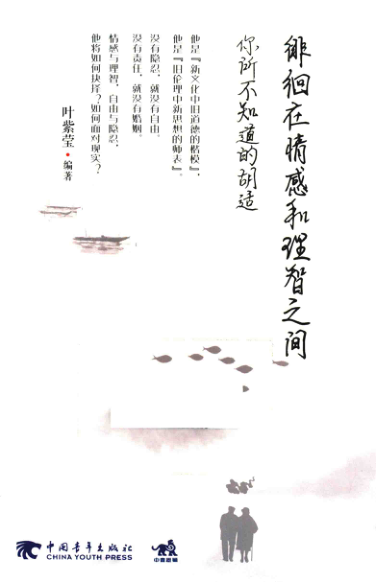 徘徊在情感和理智之间
你所不知道的胡适
他是『新文化中旧道德的楷模』，
他是『旧伦理中新思想的师表』。
没有隐忍，就没有自由，
没有责任，就没有婚姻。
情感与理智，自由与隐忍，
他将如何抉择？如何面对现实？
叶紫莹·编著
中国青年出版社
CHINA YOUTH PRESS